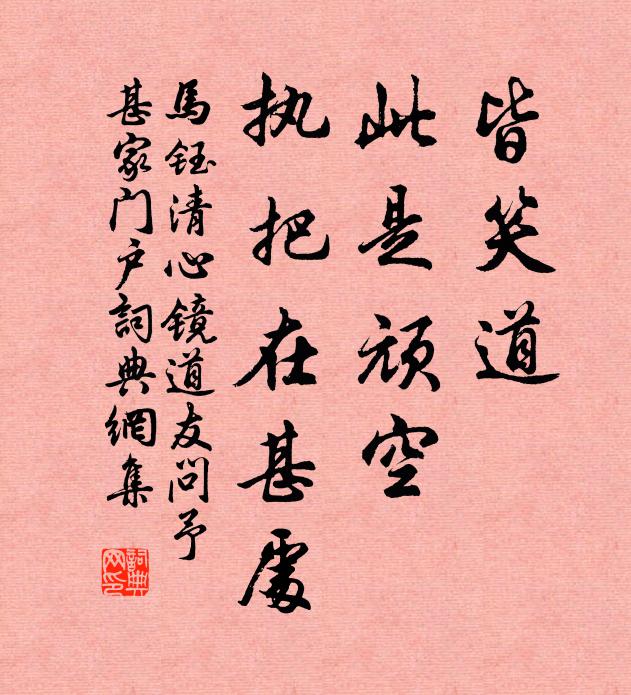 皆笑道
此是顽空
执把在甚处
馬钰清心镜道友问予
甚家门户詞典網集
詞典
网印